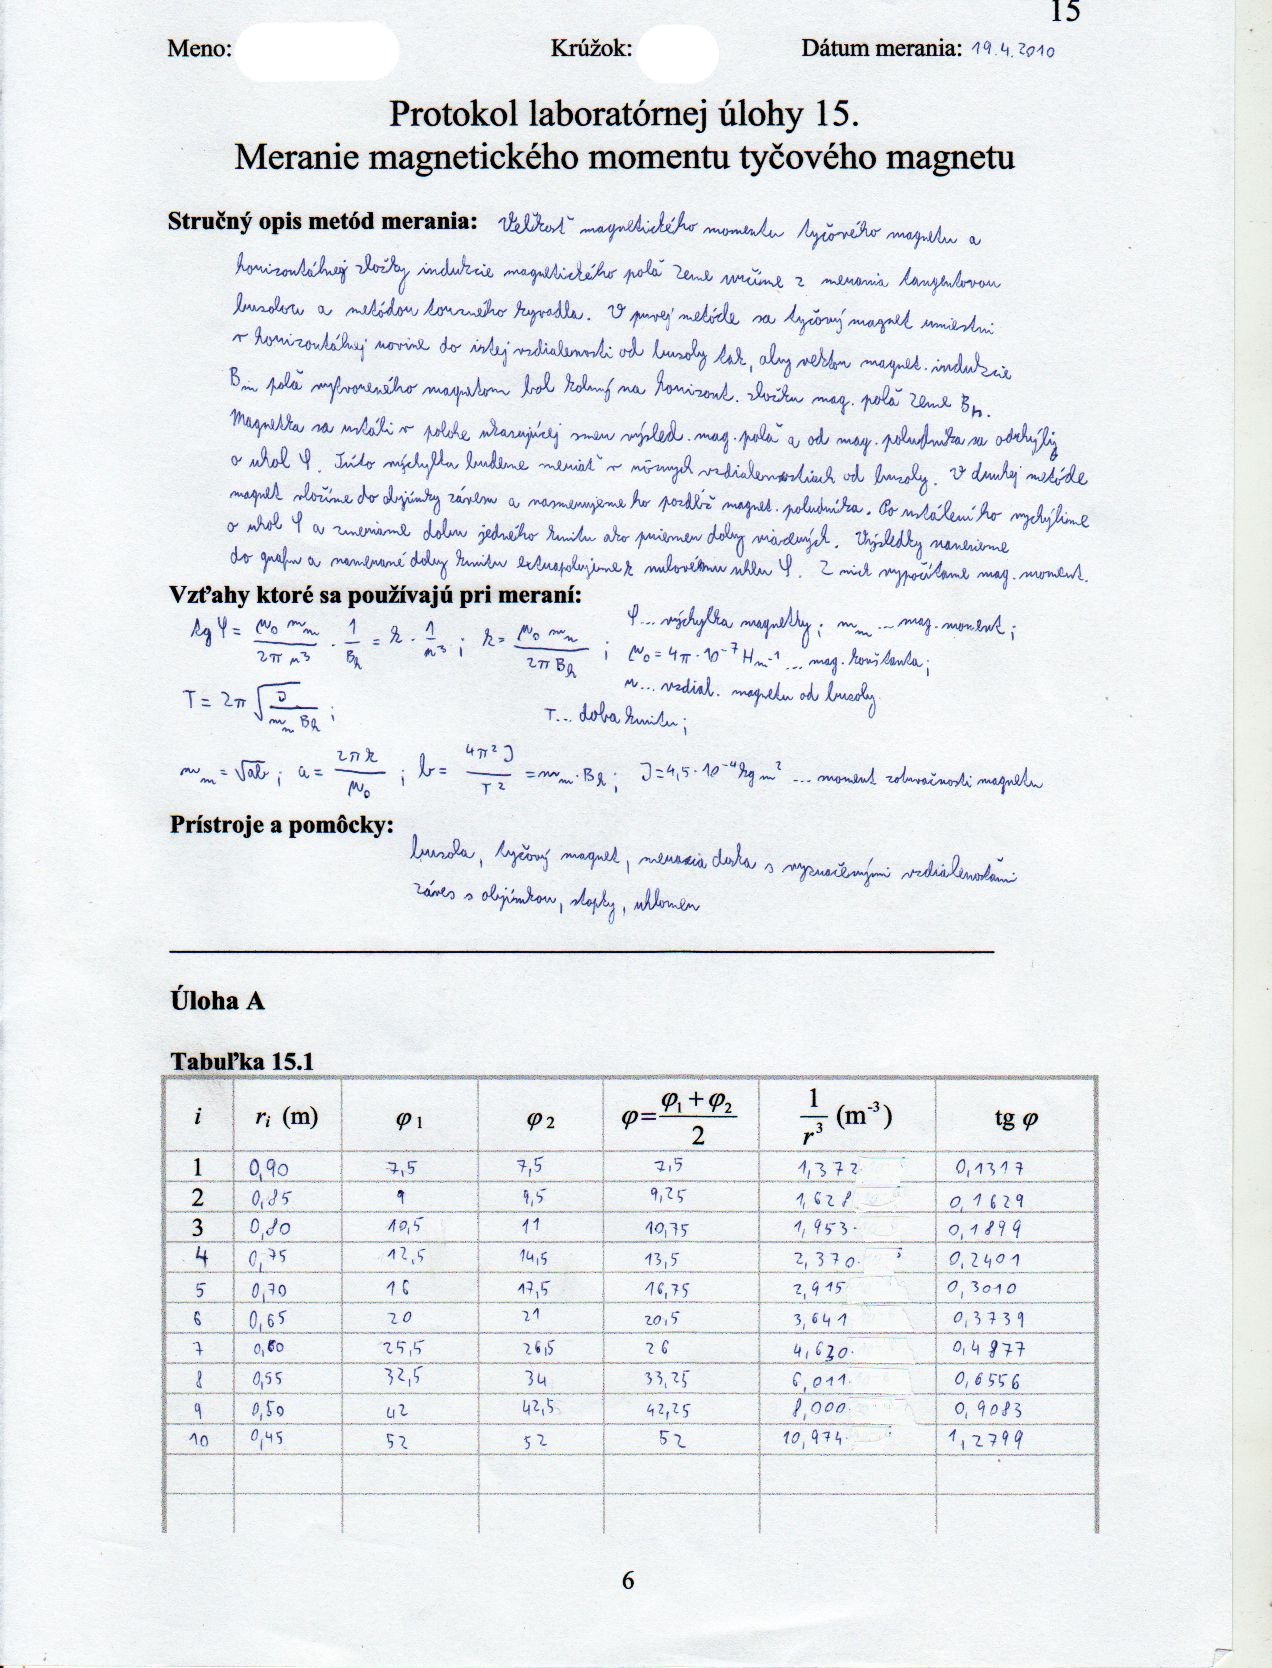 15
Meno: Krúžok: Dátum merania: 19.4.2010
Protokol laboratórnej úlohy 15.
Meranie magnetického momentu tyčového magnetu
Stručný opis metód merania: Veľkosť magnetického momentu tyčového magnetu a
horizontálnej zložky indukcie magnetického poľa Zeme určíme z merania tangentovou
buzolou a metódou torzného kyvadla. V prvej metóde sa tyčový magnet umiestni
v horizontálnej rovine do istej vzdialenosti od buzoly tak, aby vektor magnet. indukcie
Bm poľa vytvoreného magnetom bol kolmý na horizont. zložku mag. poľa Zeme Bh.
Magnetka sa ustáli v polohe ukazujúcej smer výsled. mag. poľa a od mag. poludníka sa odchýli
o uhol φ. Túto výchylku budeme merať v rôznych vzdialenostiach od buzoly. V druhej metóde
magnet vložíme do objímky závesu a nasmerujeme ho pozdĺž magnet. poludníka. Po ustálení ho vychýlime
o uhol φ a zmeriame dobu jedného kmitu ako priemer doby viacerých. Výsledky nanesieme
do grafu a namerané doby kmitu extrapolujeme k nulovému uhlu φ. Z nich vypočítame mag. moment.
Vzťahy ktoré sa používajú pri meraní:
tg φ = μ₀ mm / 2π r³ · 1/Bh = k · 1/r³ ; k = μ₀ mm / 2π Bh ; φ... výchylka magnetky; mm ... mag. moment;
μ₀ = 4π·10⁻⁷ Hm⁻¹ ... mag. konštanta;
r... vzdial. magnetu od buzoly
T = 2π √(J / mm Bh) ; T... doba kmitu;
mm = √ab ; a = 2πk / μ₀ ; b = 4π²J / T² = mm·Bh ; J = 4,5·10⁻⁴ kg m² ... moment zotrvačnosti magnetu
Prístroje a pomôcky:
buzola, tyčový magnet, meracia doska s vyznačenými vzdialenosťami
záves s objímkou, stopky, uhlomer
Úloha A
Tabuľka 15.1
i rᵢ (m) φ₁ φ₂ φ=(φ₁+φ₂)/2 1/r³ (m⁻³) tg φ
1 0,90 7,5 7,5 7,5 1,372 0,1317
2 0,85 9 9,5 9,25 1,628 0,1629
3 0,80 10,5 11 10,75 1,953 0,1899
4 0,75 12,5 14,5 13,5 2,370 0,2401
5 0,70 16 17,5 16,75 2,915 0,3010
6 0,65 20 21 20,5 3,641 0,3739
7 0,60 25,5 26,5 26 4,630 0,4877
8 0,55 32,5 34 33,25 6,011 0,6556
9 0,50 42 42,5 42,25 8,000 0,9083
10 0,45 52 52 52 10,974 1,2799
6